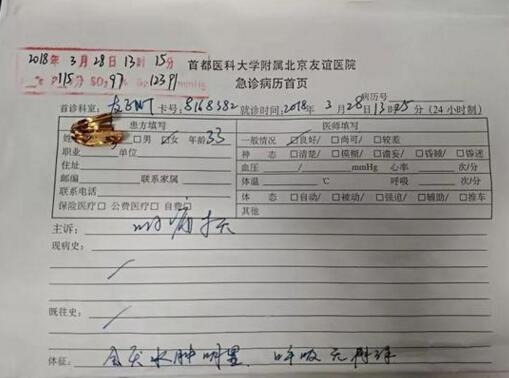 2018年3月28日13时15分
P115分SO₂97% BP123/91mmHg
首都医科大学附属北京友谊医院
急诊病历首页
病历号
首诊科室: 卡号:8168382 就诊时间:2018年3月28日13时25分(24小时制)
患方填写 医师填写
姓 □男 ☑女 年龄33 一般情况 ☑良好/ □尚可/ □较差
职业 单位 神 态 □清楚/ □模糊/ □谵妄/ □昏睡/ □昏迷
住址 血压 / mmHg 心率 次/分
邮编 联系家属 体温 ℃ 呼吸 次/分
联系电话 体 态 □自动/ □被动/ □强迫/ □辅助/ □推车
保险医疗□ 公费医疗□ 自费 其他
主诉:
现病史:
既往史:
体征: 水肿明显 呼吸